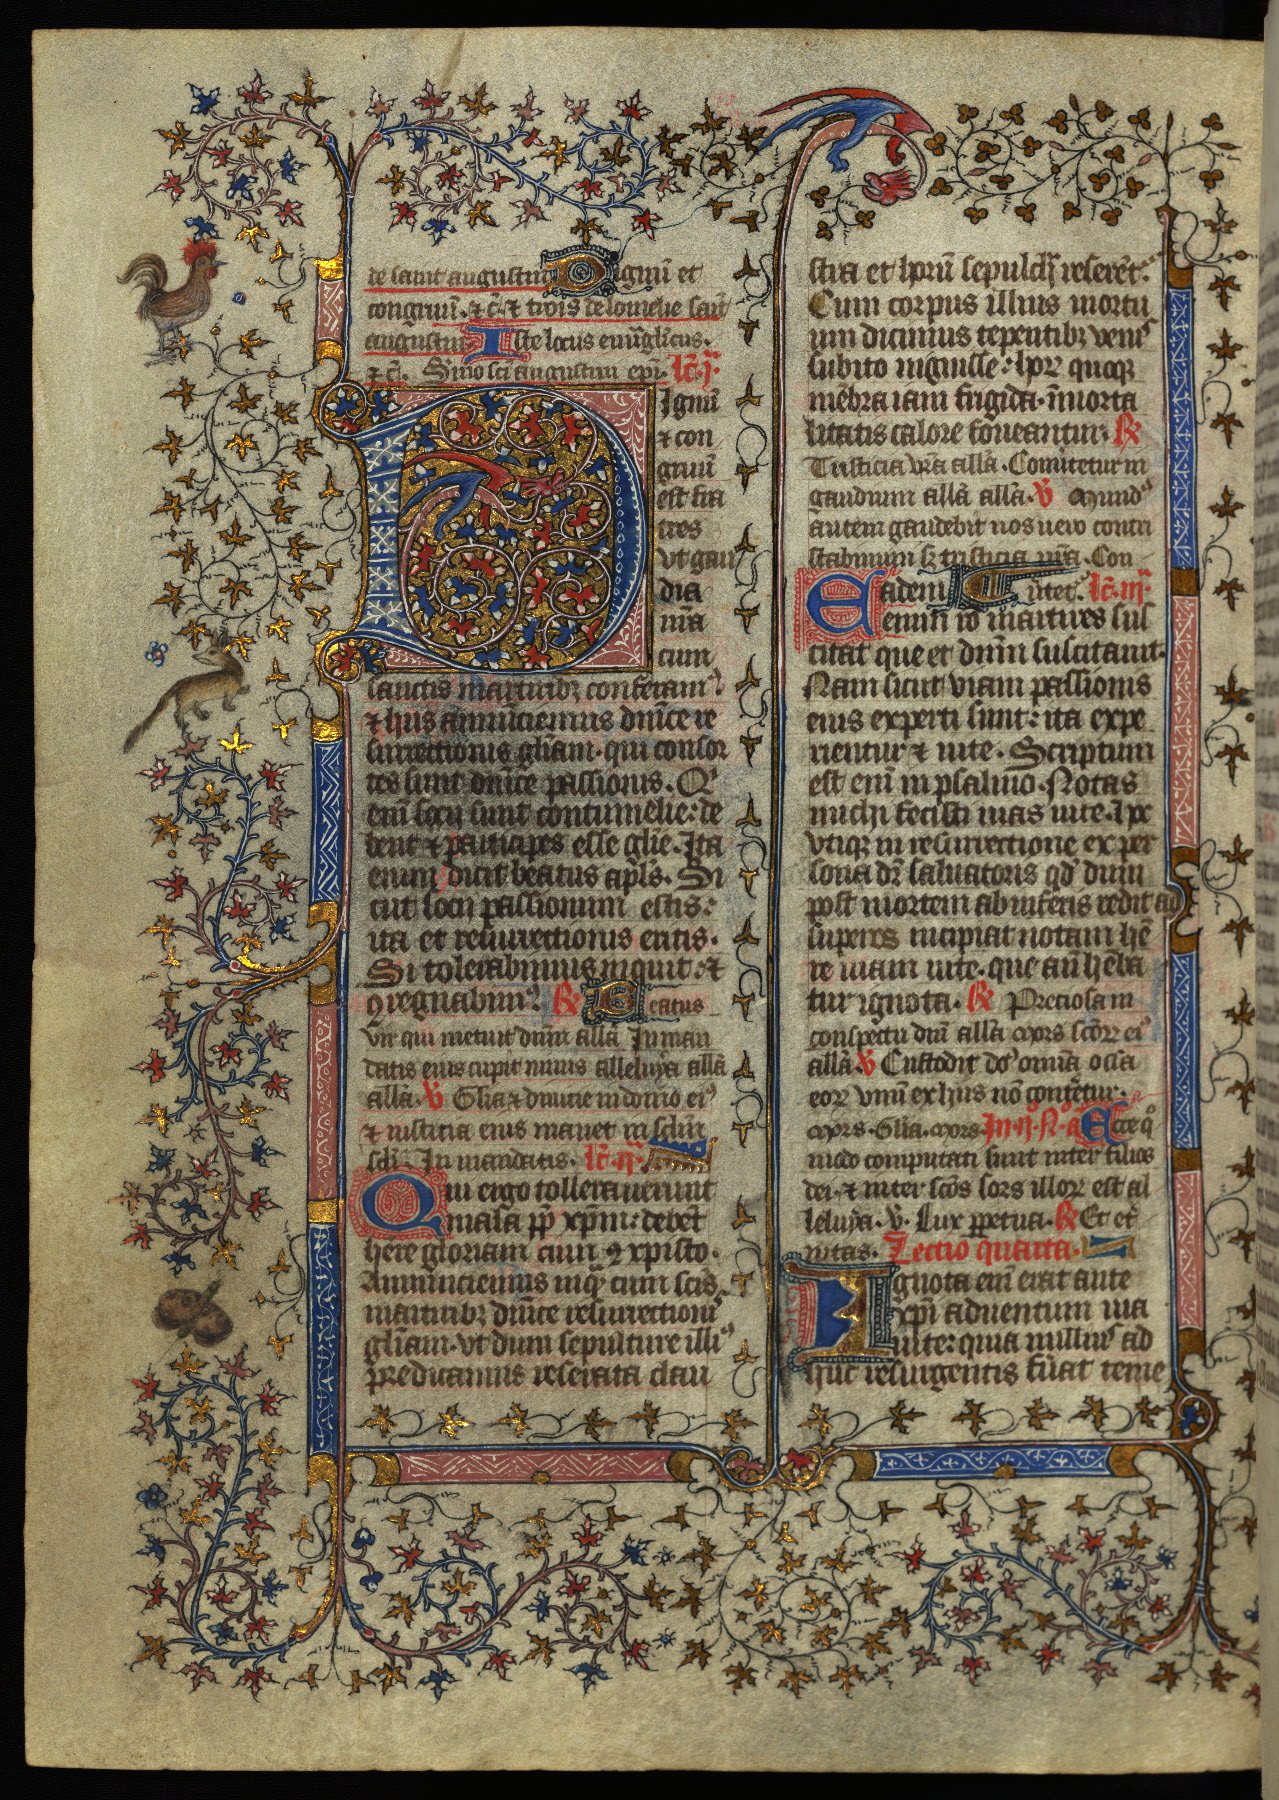 de saint augustin Dignū et
congruū. ⁊ c̄. ⁊ trois de lomelie saīt
augustin. Iste locus euūglicus.
⁊ c̄. Smo sci augustini epī. lc̄. j.
Dignū
⁊ con
gruū
est fra
tres
vt gau
dia
n̄ia
cum
sanctis martiribꝫ conferamꝰ
⁊ hiis annūciemus dnīce re
surrectionis gl̄iam. qui consor
tes sunt dnīce passionis. Qͥ
enī socij sunt contumelie: de
bent ⁊ participes esse glīe. Ita
enim dicit beatus apl̄s. Si
cut socij passionum estis:
ita et resurrectionis eritis.
Si tolerabimus inquit: ⁊
ꝯregnabimꝰ. ℟ Beatus
vir qui metuit dnm̄ allā In man
datis eius cupit nimis alleluya allā
allā. ℣ Glīa ⁊ diuicie in domo eiꝰ
⁊ iusticia eius manet in sclm̄
scli. In mandatis. lc̄. ij.
Qui ergo tollerauerunt
mala ꝓp̄ xp̄m: debēt
h̄ere gloriam cum xpisto.
Annunciemus inqͣ cum scīs
martiribꝫ dnīce resurrectionis
gl̄iam. vt dum sepulture illiꝰ
predicamus reserata clau
stra et horū sepulch reserēt.
Cum corpus illius mortu
um dicimus tepentibꝫ venis
subito riguisse: hoꝝ quoqꝫ
mēbra iam frigida. īmorta
litatis calore foueantur. ℟
Tristicia vr̄a allā. Conuertetur in
gaudium allā allā. ℣ Mundꝰ
autem gaudebit uos uero contri
stabimini sꝫ tristicia vr̄a. Con
Eadem Utet. lc̄. iij.
enim ro martires sus
citat que et dnm̄ suscitauit.
Nam sicut viam passionis
eius experti sunt: ita expe
rientur ⁊ uite. Scriptum
est enī in psalmo. Notas
michi fecisti uias uite. Ipͨ
vtiqꝫ in resurrectione ex per
sona dr̄ saluatoris qd̓ dum
post mortem ab inferis redit ad
superos incipiat notam h̄e
re uiam uite. que an̄ h̄eba
tur ignota. ℟ Preciosa in
conspectu dnī allā Mors scōꝝ eiꝰ
allā ℣ Custodit dn̄s omīa ossa
eoꝝ vnū ex hijs nō conterētur.
Mors. Glīa. Mors. In. ij. N. a Ecce qͦ
modo computati sunt inter filios
dei. ⁊ inter scōs sors illoꝝ est al
leluya. v̄. Lux ꝑpetua. ℟ Et et̄
nitas. Lectio quarta.
Ignota enī erat ante
xp̄i aduentum uia
uite: quia nulliꝰ ad
huc resurgentis fūat teme